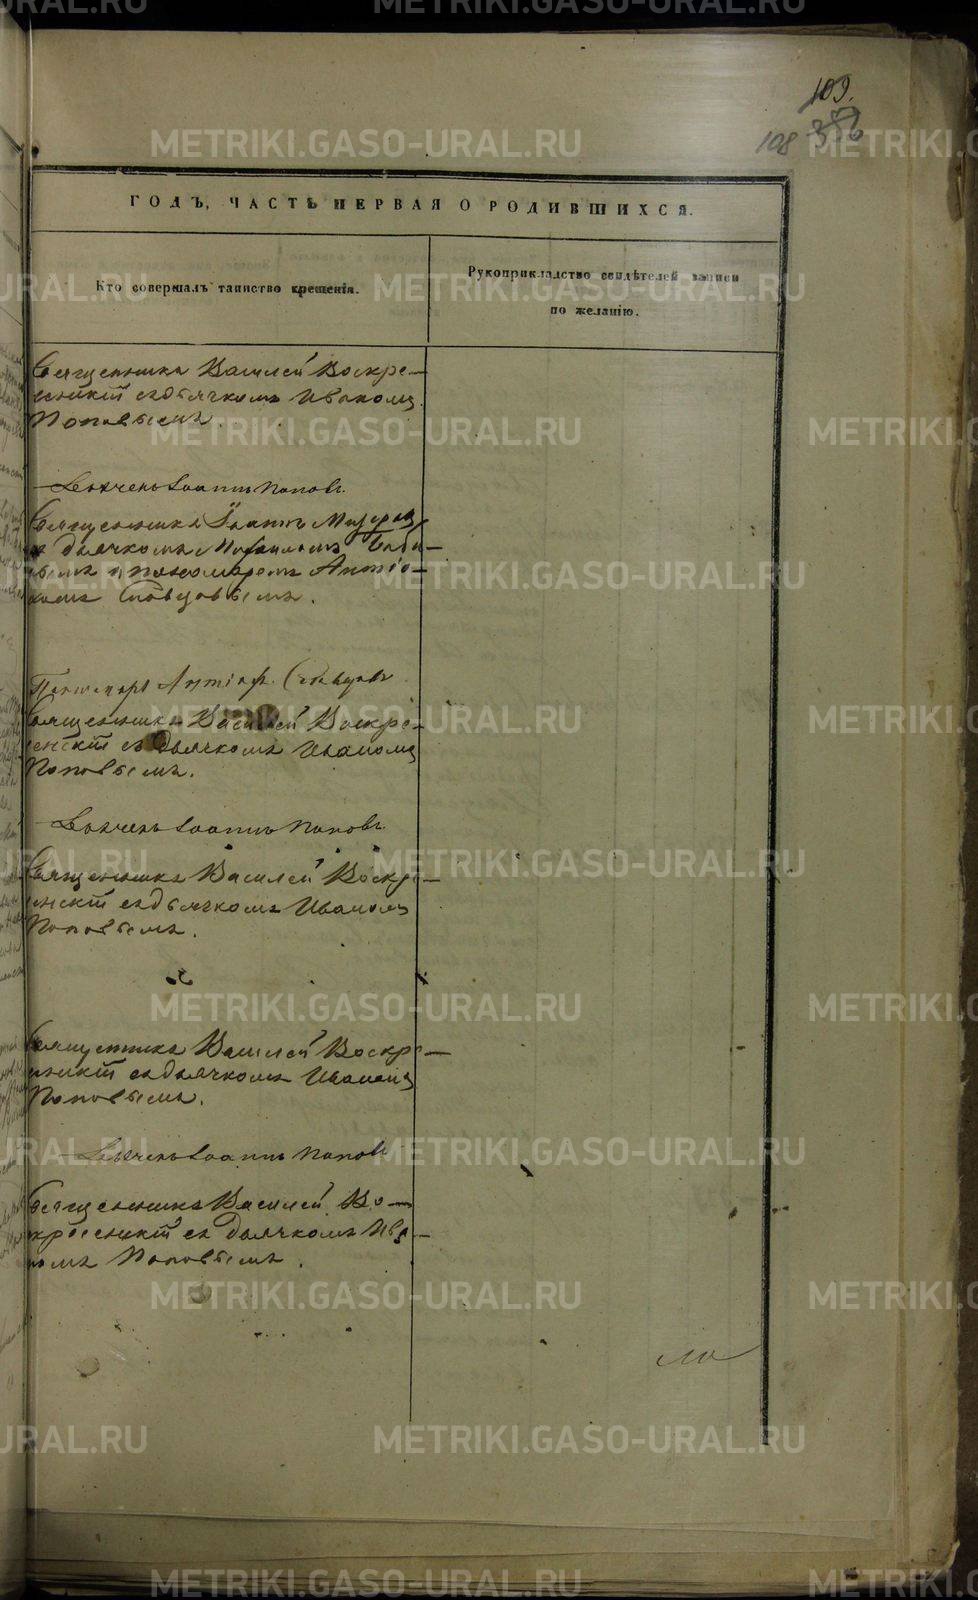 109.
108 356
ГОДЪ, ЧАСТЬ ПЕРВАЯ О РОДИВШИХСЯ.
Кто совершалъ таинство крещенія.
Рукоприкладство свидѣтелей записи
по желанію.
Священника Василей Воскре-
сенскій съ дьячкомъ Иваномъ
Поповымъ.
Іоаннъ Поповъ.
Священника Іоаннъ
и дьячкомъ Михаиломъ
и пономаремъ Антіо-
хомъ Словцовымъ.
Пономарь Антіохъ Словцовъ
Священника Василей Воскре-
сенскій съ дьячкомъ Иваномъ
Поповымъ.
Іоаннъ Поповъ.
Священника Василей Воскре-
сенскій съ дьячкомъ Иваномъ
Поповымъ.
Священника Василей Воскре-
сенскій съ дьячкомъ Иваномъ
Поповымъ.
Іоаннъ Поповъ
Священника Василей Во-
кресенскій съ дьячкомъ Ива-
номъ Поповымъ.
METRIKI.GASO-URAL.RU